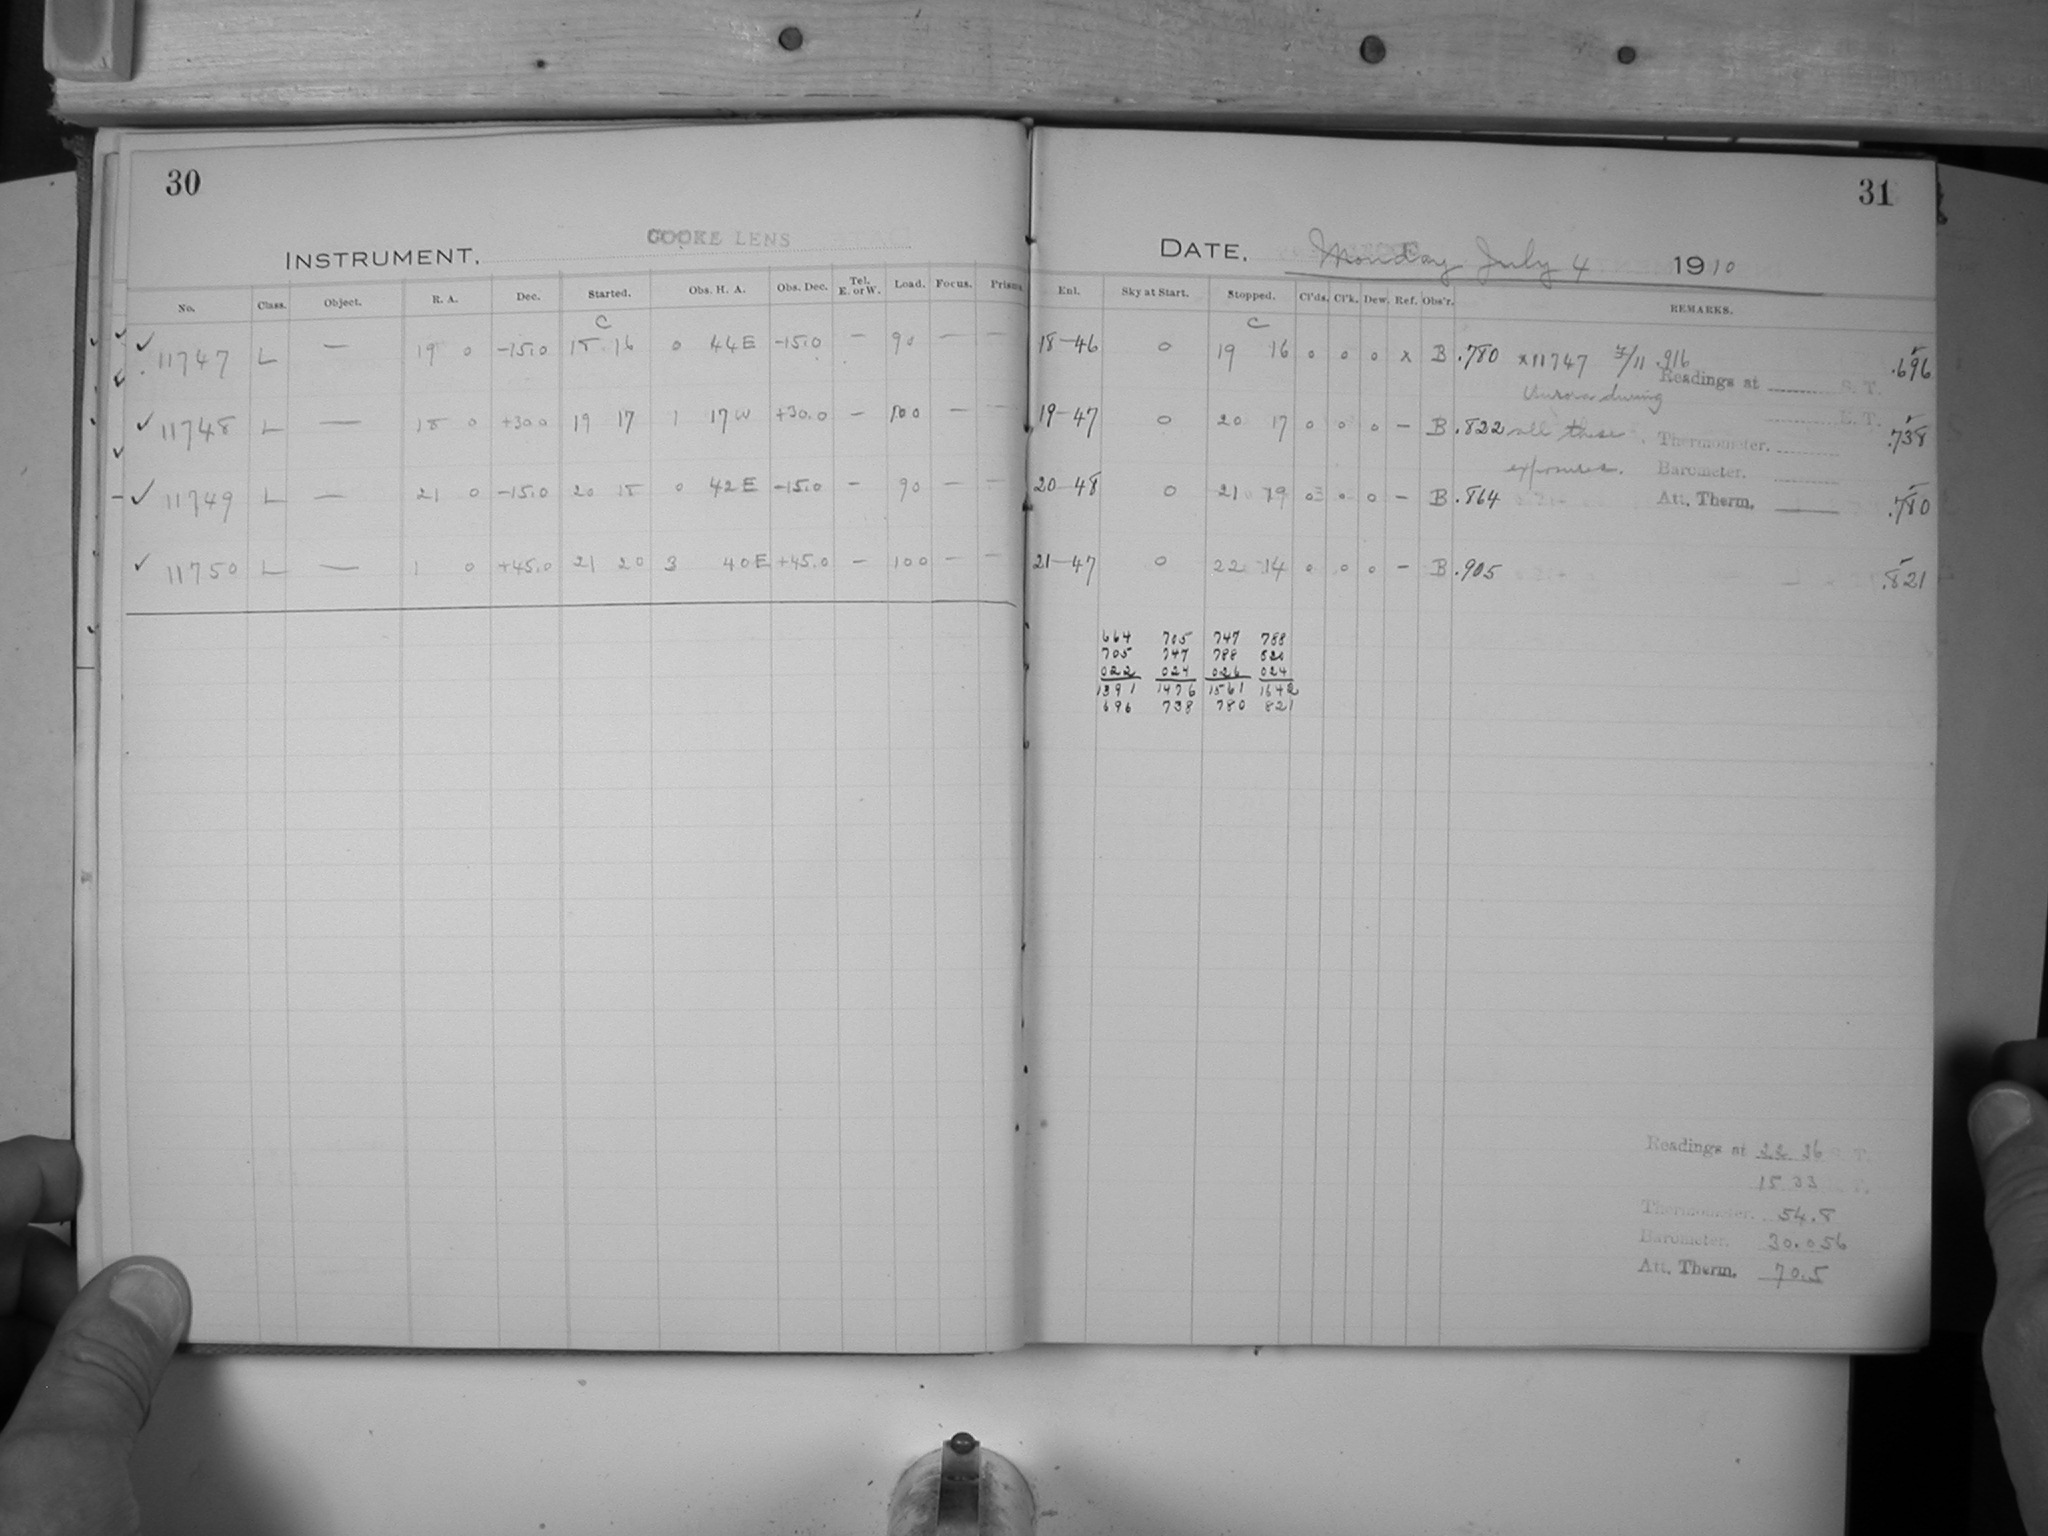 30
COOKE LENS
INSTRUMENT.
No. Class. Object. R. A. Dec. Started. Obs. H. A. Obs. Dec. Tel. E. or W. Load. Focus. Prisms
C
11747 L — 19 0 -15.0 18 16 0 44E -15.0 — 90 — —
11748 L — 18 0 +30.0 19 17 1 17W +30.0 — 100 — —
11749 L — 21 0 -15.0 20 18 0 42E -15.0 — 90 — —
11750 L — 1 0 +45.0 21 20 3 40E +45.0 — 100 — —
31
DATE. Monday July 4 1910
Enl. Sky at Start. Stopped. Cl'ds. Cl'k. Dew. Ref. Obs'r. REMARKS.
C
18-46 0 19 16 0 0 0 x B .780 x11747 7/11 .916 .696
Readings at S. T.
Aurora during
19-47 0 20 17 0 0 0 — B .822 all these .738
Thermometer.
exposures. Barometer.
20-48 0 21 19 0 0 0 — B .864 Att. Therm. .780
21-47 0 22 14 0 0 0 — B .905 .821
664 705 747 788
705 747 788 830
022 024 026 024
1391 1476 1561 1642
696 738 780 821
Readings at 22 26 S. T.
15 33
Thermometer. 54.8
Barometer. 30.056
Att. Therm. 70.5